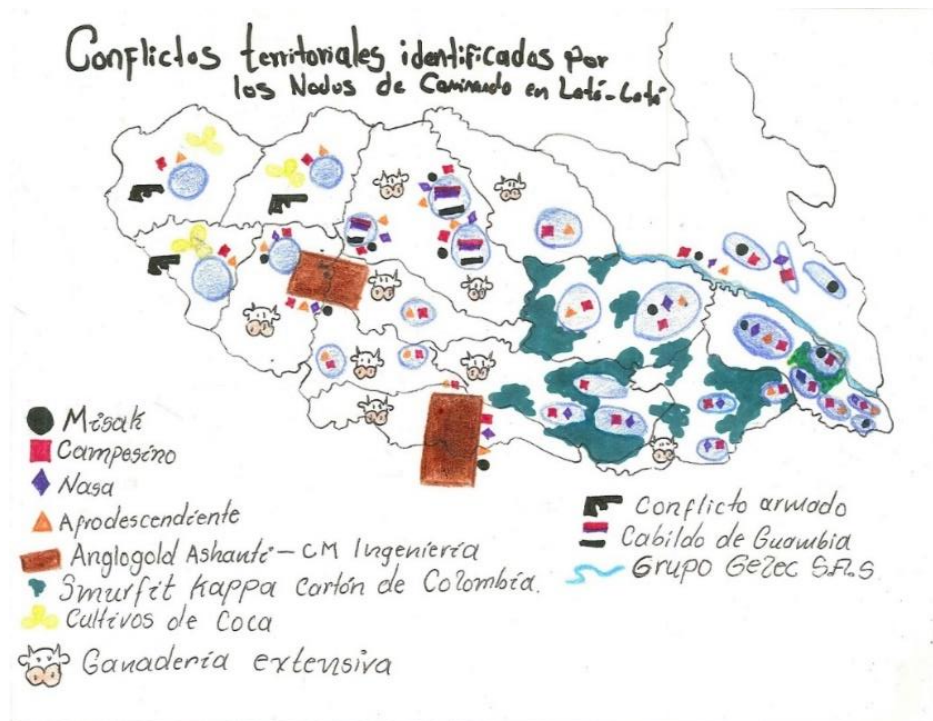 Conflictos territoriales identificados por
los Nodos de Caminando en Lotó-Cotó
Misak
Campesino
Nasa
Afrodescendiente
Anglogold Ashanti - CM Ingeniería
Smurfit Kappa Cartón de Colombia.
Cultivos de Coca
Ganadería extensiva
Conflicto armado
Cabildo de Guambia
Grupo Gelec S.A.S